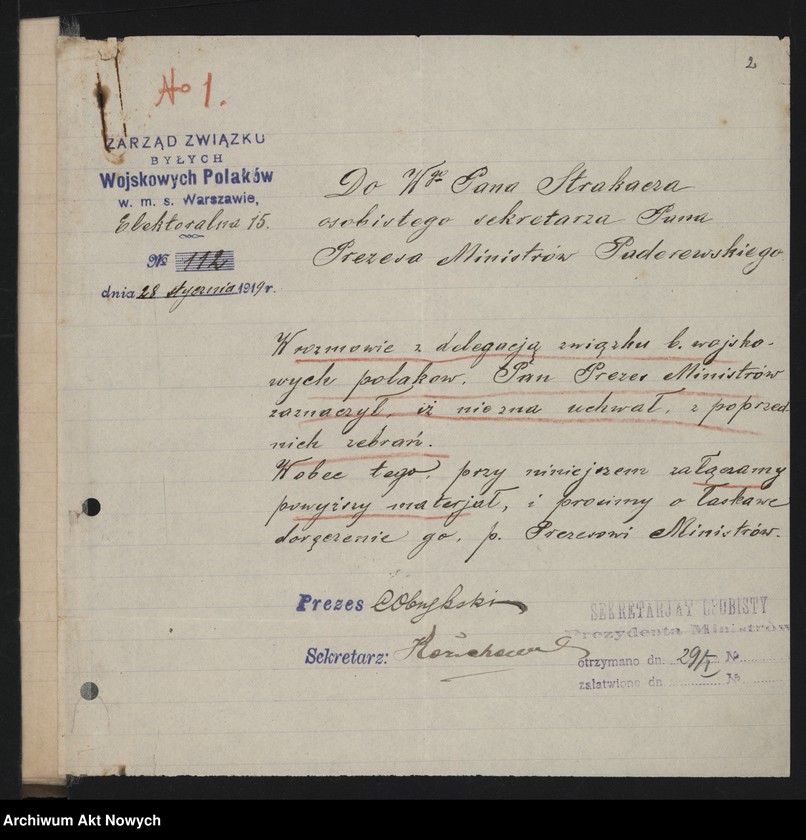 2
No 1.
ZARZĄD ZWIĄZKU
BYŁYCH
Wojskowych Polaków
w. m. s. Warszawie,
Elektoralna 15.
№ 112
dnia 28 stycznia 1919 r.
Do Wgo Pana Strakacza
osobistego sekretarza Pana
Prezesa Ministrów Paderewskiego
W rozmowie z delegacją związku b. wojsko-
wych polakow. Pan Prezes Ministrów
zaznaczył, iż nie zna uchwał, z poprzed-
nich zebrań.
Wobec tego, przy niniejszem załączamy
powyższy materjał, i prosimy o łaskawe
doręczenie go, p. Prezesowi Ministrów.
Prezes
Sekretarz:
SEKRETARJAT OSOBISTY
Prezydenta Ministrów
otrzymano dn. 29/I №
załatwiono dn. №
Archiwum Akt Nowych